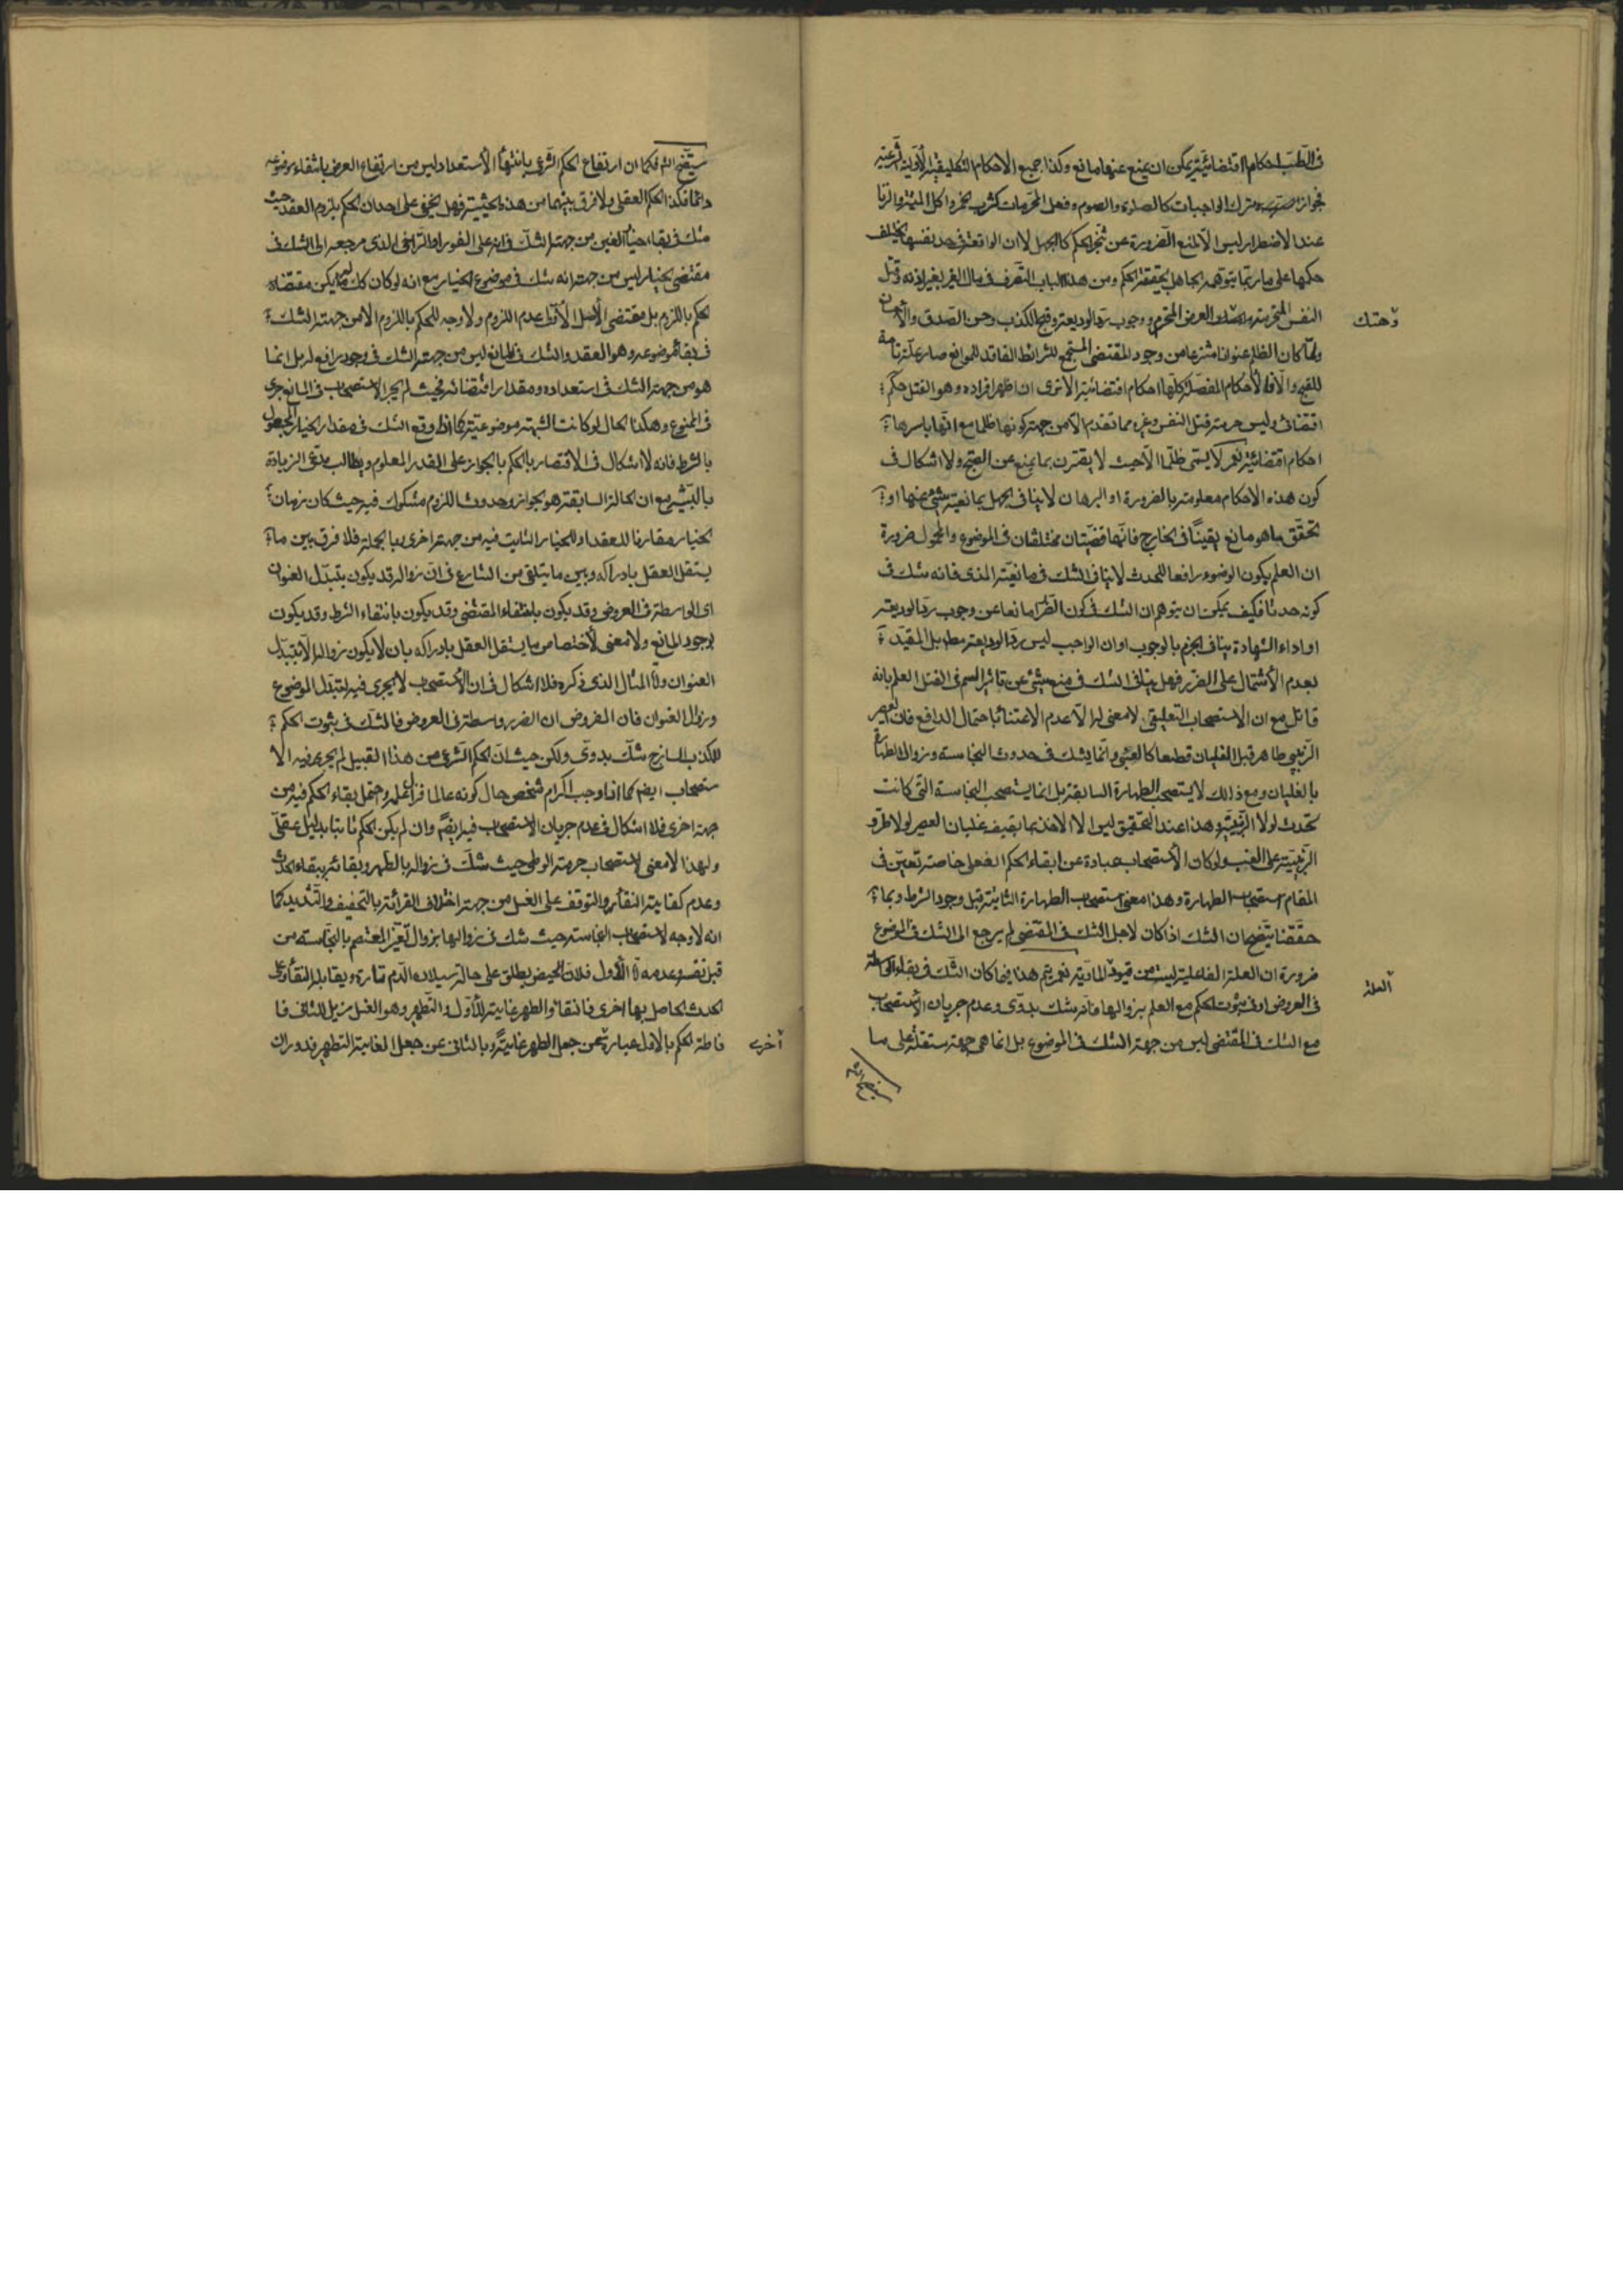 فى الطب احكام اقتضائية يمكن ان يمنع عنها مانع وكذا جميع الاحكام التكليفية الاولية الشرعية
فجواز ترك الواجبات كالصلوة والصوم وفعل المحرمات كشرب الخمر واكل الميتة والزنا
عند الاضطرار ليس الا لمنع الضرورة عن تنجز الحكم كالجهل لا ان الواقعة فى حد نفسها يختلف
حكمها على ما ربما يتوهمه الجاهل بحقيقة الحكم ومن هذا الباب التصرف فى مال الغير بغير اذنه وقتل
النفس المحترمة العرض المحترم ووجوب رد الوديعة وقبح الكذب وحسن الصدق والاحسان
وهتك
ولما كان الظلم عنوانا منتزعا من وجود المقتضى المستجمع للشرائط الفاقد للموانع صار علة تامة
للقبح والا فالاحكام المفصلة كلها احكام اقتضائية الا ترى ان اظهر افراده وهو القتل حكمه
اقتضائى وليس حرمة قتل النفس وغيره مما تقدم الا من جهة كونها ظلما مع انها باسرها
احكام اقتضائية نعم لا يسمى ظلما الا حيث لا يقترن بما يمنع عن القبح ولا اشكال فى
كون هذه الاحكام معلومة بالضرورة او البرهان لا ينافى الجهل بمانعية شئ عنها او
تحقق ما هو مانع يقينا فى الخارج فانها قضيتان مختلفتان فى الموضوع والمحمول ضرورة
ان العلم بكون الوضوء رافعا للحدث لا ينافى الشك فى مانعية المذى فانه شك فى
كونه حدثا فكيف يمكن ان يتوهم ان الشك فى كون الضرر مانعا عن وجوب رد الوديعة
او اداء الشهادة ينافى الجزم بالوجوب او ان الواجب ليس رد الوديعة مط بل المقيد
بعدم الاشتمال على الضرر فهل ينافى الشك فى منع شئ عن تاثير السم فى القتل العلم بانه
قاتل مع ان الاستصحاب التعليقى لا معنى له الا عدم الاعتناء باحتمال الدافع فان العصير
الزبيبى طاهر قبل الغليان قطعا كالعنبى وانما يشك فى حدوث النجاسة وزوال الطهارة
بالغليان ومع ذلك لا يستصحب الطهارة السابقة بل انما يستصحب النجاسة التى كانت
تحدث لولا الزبيبية وهذا عند التحقيق ليس الا الاخذ بما يقتضيه غليان العصير لولا طرو
الزبيبية على العنب ولو كان الاستصحاب عبارة عن ابقاء الحكم الفعلى خاصة تعين فى
المقام استصحاب الطهارة وهذا معنى استصحاب الطهارة الثابتة قبل وجود الشرط وبما
حققنا يتضح ان الشك اذا كان لاجل الشك فى المقتضى لم يرجع الى الشك فى الموضوع
ضرورة ان العلة الفاعلية ليست من قيود المادية نعم يتم هذا فيما كان الشك فى بقاء الواسطة
العلة
فى العروض او فى ثبوت الحكم مع العلم بزوالها فانه شك بدوى وعدم جريان الاستصحاب
مع الشك فى المقتضى ليس من جهة الشك فى الموضوع بل انما هى جهة مستقلة على ما
سيتضح انش
سيتضح انش فكما ان ارتفاع الحكم الشرعى بانتهاء الاستعداد ليس من ارتفاع العرض بانتفاء موضوعه
دائما فكذا الحكم العقلى بلا فرق بينهما من هذه الحيثية فهل يخفى على احد ان الحكم بلزوم العقد حيث
شك فى بقاء خيار الغبن من جهة الشك فى انه على الفور او التراخى الذى مرجعه الى الشك فى
مقتضى الخيار ليس من جهة انه شك فى موضوع الخيار مع انه لو كان كك لم يكن مقتضاه
الحكم باللزوم بل مقتضى الاصل الاول عدم اللزوم ولا وجه للحكم باللزوم الا من جهة الشك
فى بقاء موضوعه وهو العقد والشك فى المانع ليس من جهة الشك فى وجود رافع له بل انما
هو من جهة الشك فى استعداده ومقدار اقتضائه فحيث لم يجر الاستصحاب فى المانع جرى
فى الممنوع وهكذا الحال لو كانت الشبهة موضوعية كما اذا وقع الشك فى مقدار الخيار المجعول
بالشرط فانه لا اشكال فى الاقتصار بالحكم بالجواز على القدر المعلوم ويطالب مدعى الزيادة
بالبينة مع ان الحالة السابقة هو الجواز وحدوث اللزوم مشكوك فيه حيث كان زمان
الخيار مقارنا للعقد او للخيار الثابت فيه من جهة اخرى وبالجملة فلا فرق بين ما
يستقل العقل بادراكه وبين ما يتلقى من الشارع فى ان زواله قد يكون بتبدل العنوان
اى الواسطة فى العروض وقد يكون بانتفاء المقتضى وقد يكون بانتفاء الشرط وقد يكون
لوجود المانع ولا معنى لاختصاص ما يستقل العقل بادراكه بان لا يكون زواله الا بتبدل
العنوان واما المثال الذى ذكره فلا اشكال فى ان الاستصحاب لا يجرى فيه لتبدل الموضوع
وزوال العنوان فان المفروض ان الضرر واسطة فى العروض فالشك فى ثبوت الحكم
للكذب السازج شك بدوى ولكن حيث ان الحكم الشرعى من هذا القبيل لم يجر فيه الا
ستصحاب ايضم كما اذا وجب اكرام شخص حال كونه عالما فزال علمه واحتمل بقاء الحكم فيه من
جهة اخرى فلا اشكال فى عدم جريان الاستصحاب فيه ايضم وان لم يكن الحكم ثابتا بدليل عقلى
ولهذا لا معنى لاستصحاب حرمة الوطى حيث شك فى زواله بالطهر وبقائه ببقاء الحدث
وعدم كفاية النقاء والتوقف على الغسل من جهة اختلاف القرائة بالتخفيف والتشديد كما
انه لا وجه لاستصحاب النجاسة حيث شك فى زوالها بزوال تغير المعتصم بالنجاسة من
قبل نفسه وعدمه اما الاول فلان الحيض يطلق على حالة سيلان الدم تارة ويقابله النقاء وعلى
الحدث الحاصل بها اخرى فالنقاء والطهر غاية للاول والتطهر وهو الغسل مزيل للثانى فا
ناطة الحكم بالاول عبارة عن جعل الطهر غاية وبالثانى عن جعل الغاية التطهر فدوران
اخرى